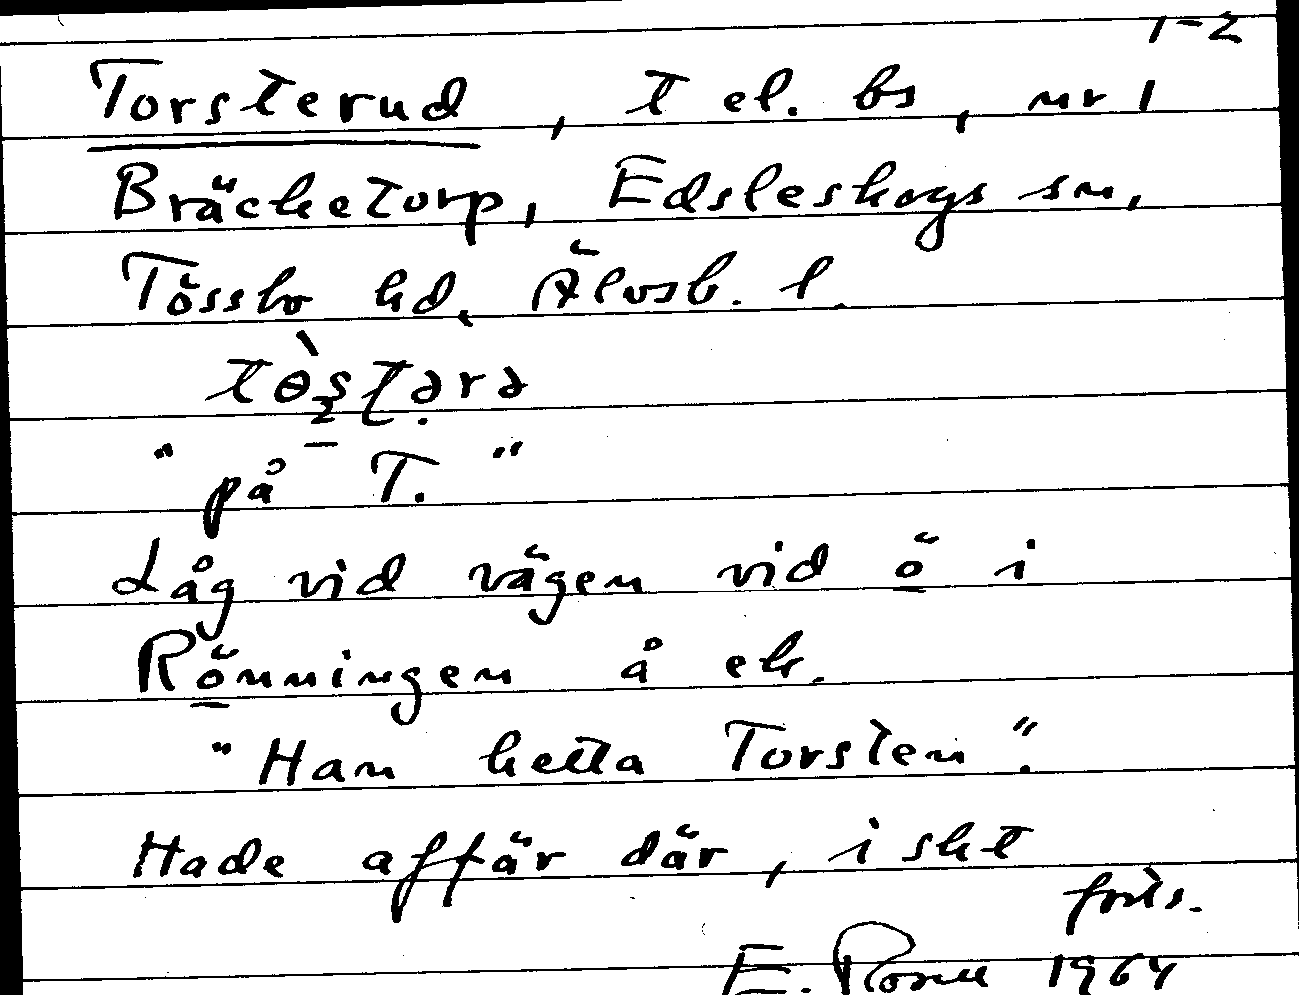 1-2
Torsterud, t el. bs, nr 1
Bräcketorp, Edsleskogs sn,
Tössbo hd, Älvsb. l.
"på T."
Låg vid vägen vid ö i
Rönningen å ek.
"Han hetta Torsten".
Hade affär där, i skt
forts.
E. 1964